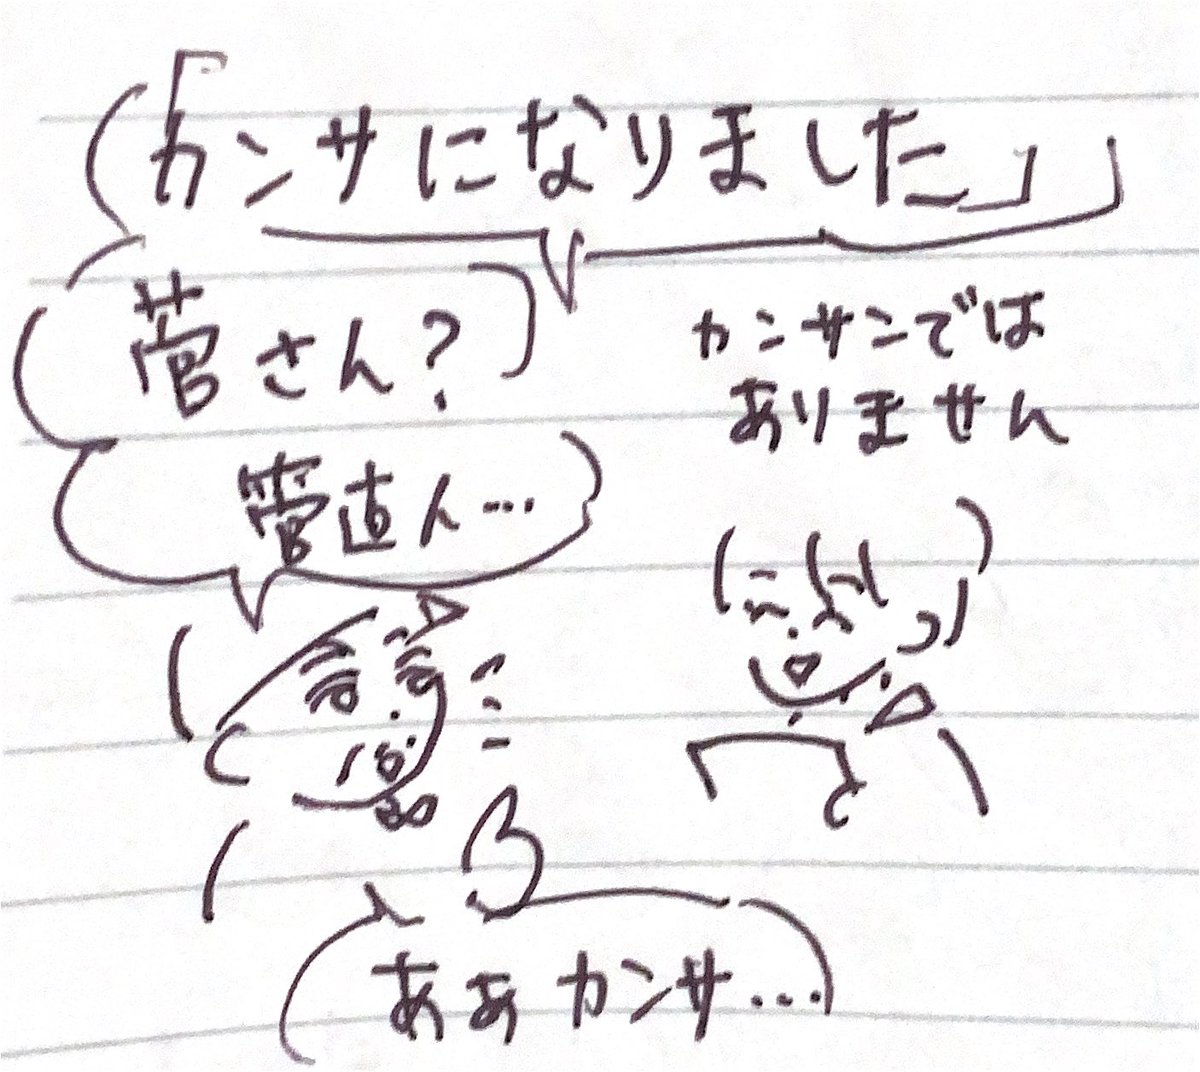 「カンサになりました」
菅さん?
カンサンでは
ありません
菅直人…
ああカンサ…